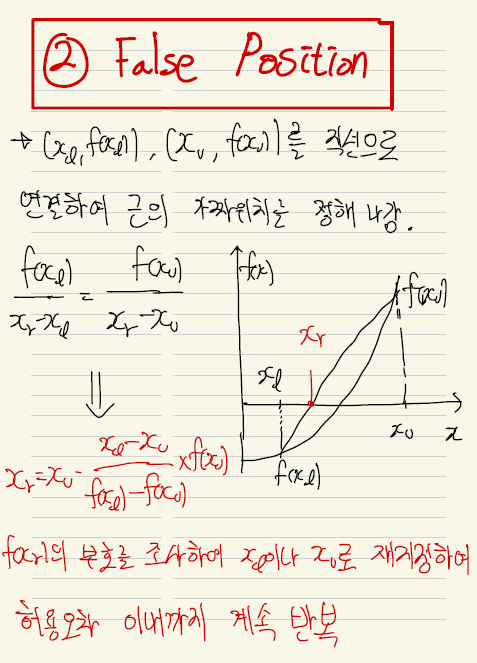 ② False Position
→ (x_l, f(x_l)), (x_u, f(x_u))를 직선으로
연결하여 근의 가짜위치는 정해 나감.
f(x_l)/(x_r-x_l) = f(x_u)/(x_r-x_u)
⇓
x_r = x_u - (x_l-x_u)/(f(x_l)-f(x_u)) × f(x_u)
f(x)
f(x_u)
x_r
x_l
x_u
x
f(x_l)
f(x_r)의 부호를 조사하여 x_l이나 x_u로 재지정하여
허용오차 이내까지 계속 반복